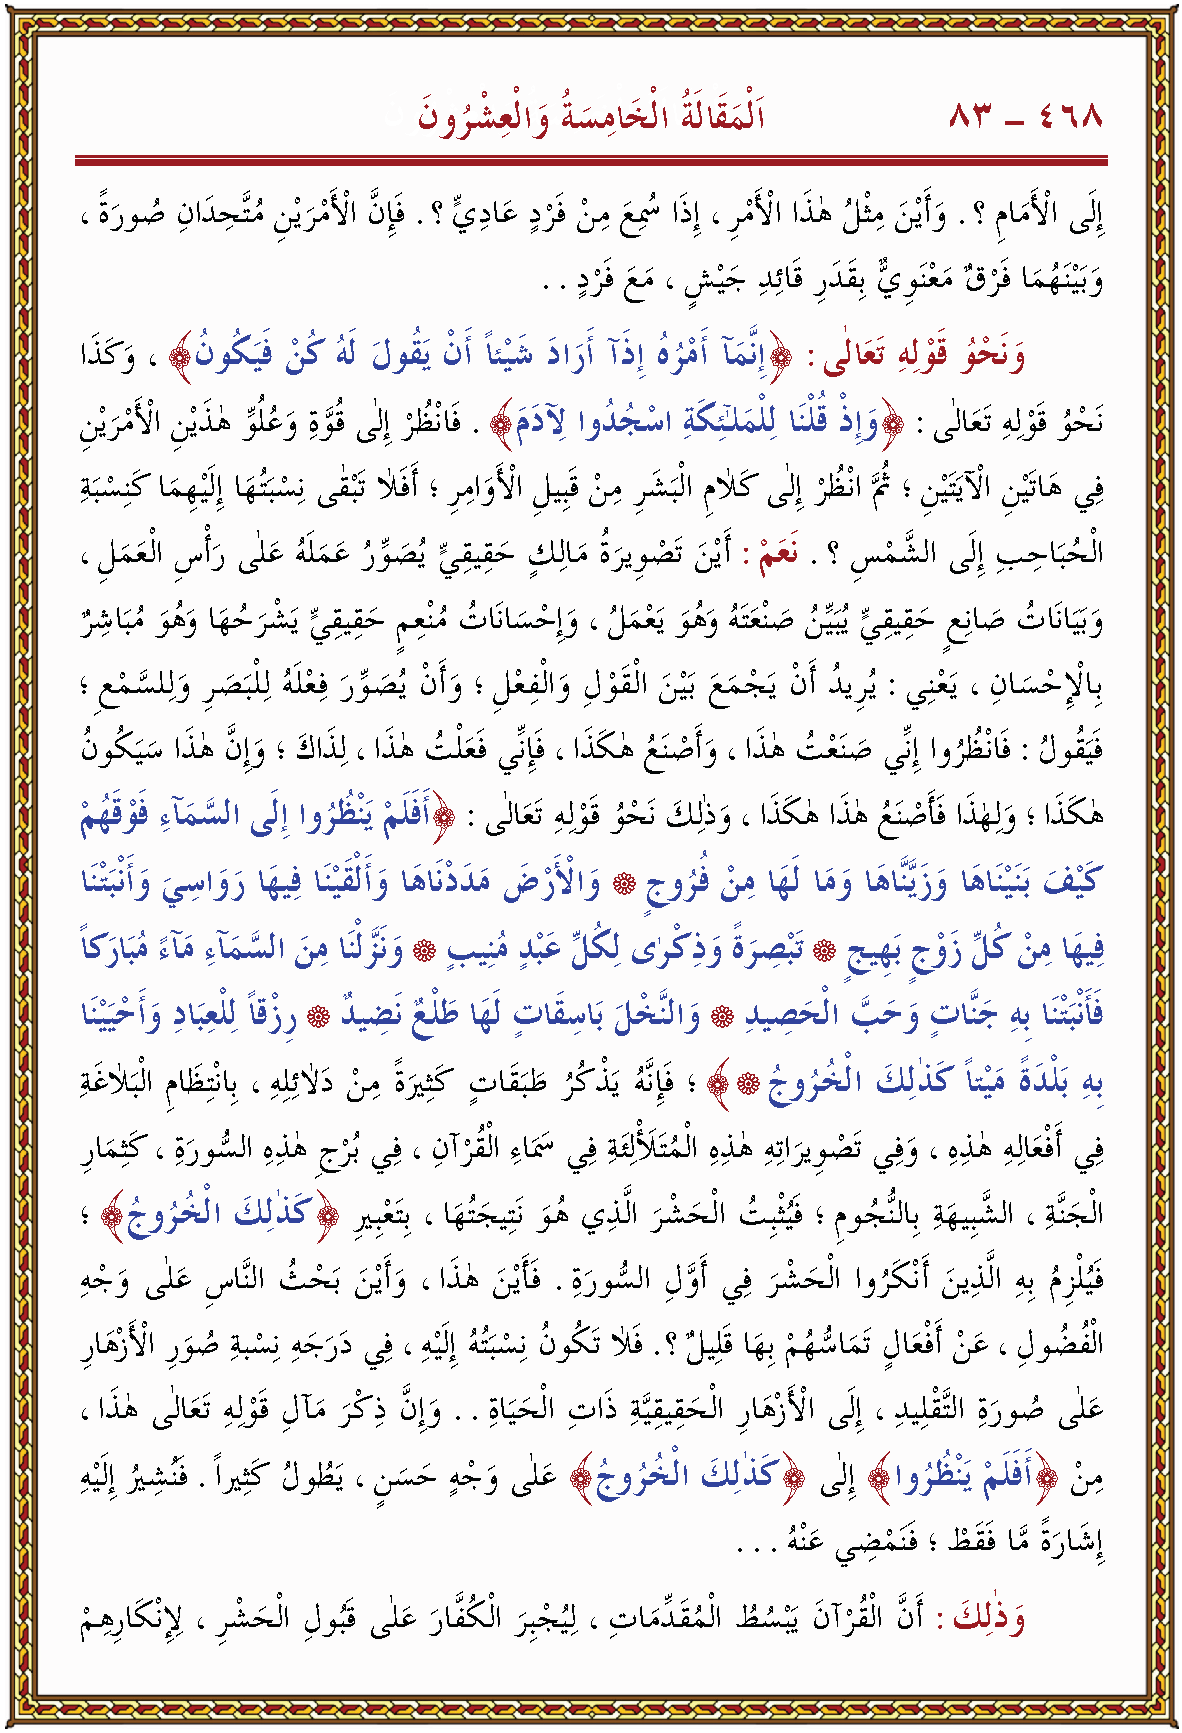 ٤٦٨ – ٨٣ اَلْمَقَالَةُ الْخَامِسَةُ وَالْعِشْرُونَ
إِلَى الْأَمَامِ ؟ . وَأَيْنَ مِثْلُ هٰذَا الْأَمْرِ ، إِذَا سُمِعَ مِنْ فَرْدٍ عَادِيٍّ ؟ . فَإِنَّ الْأَمْرَيْنِ مُتَّحِدَانِ صُورَةً ،
وَبَيْنَهُمَا فَرْقٌ مَعْنَوِيٌّ بِقَدَرِ قَائِدِ جَيْشٍ ، مَعَ فَرْدٍ . .
وَنَحْوُ قَوْلِهِ تَعَالٰى : ﴿إِنَّمَآ أَمْرُهُ إِذَآ أَرَادَ شَيْئاً أَنْ يَقُولَ لَهُ كُنْ فَيَكُونُ﴾ ، وَكَذَا
نَحْوُ قَوْلِهِ تَعَالٰى : ﴿وَإِذْ قُلْنَا لِلْمَلٰٓئِكَةِ اسْجُدُوا لِآدَمَ﴾ . فَانْظُرْ إِلٰى قُوَّةِ وَعُلُوِّ هٰذَيْنِ الْأَمْرَيْنِ
فِي هَاتَيْنِ الْآيَتَيْنِ ؛ ثُمَّ انْظُرْ إِلٰى كَلَامِ الْبَشَرِ مِنْ قَبِيلِ الْأَوَامِرِ ؛ أَفَلَا تَبْقٰى نِسْبَتُهَا إِلَيْهِمَا كَنِسْبَةِ
الْحُبَاحِبِ إِلَى الشَّمْسِ ؟ . نَعَمْ : أَيْنَ تَصْوِيرَةُ مَالِكٍ حَقِيقِيٍّ يُصَوِّرُ عَمَلَهُ عَلٰى رَأْسِ الْعَمَلِ ،
وَبَيَانَاتُ صَانِعٍ حَقِيقِيٍّ يُبَيِّنُ صَنْعَتَهُ وَهُوَ يَعْمَلُ ، وَإِحْسَانَاتُ مُنْعِمٍ حَقِيقِيٍّ يَشْرَحُهَا وَهُوَ مُبَاشِرٌ
بِالْإِحْسَانِ ، يَعْنِي : يُرِيدُ أَنْ يَجْمَعَ بَيْنَ الْقَوْلِ وَالْفِعْلِ ؛ وَأَنْ يُصَوِّرَ فِعْلَهُ لِلْبَصَرِ وَلِلسَّمْعِ ؛
فَيَقُولُ : فَانْظُرُوا إِنِّي صَنَعْتُ هٰذَا ، وَأَصْنَعُ هٰكَذَا ، فَإِنِّي فَعَلْتُ هٰذَا ، لِذَاكَ ؛ وَإِنَّ هٰذَا سَيَكُونُ
هٰكَذَا ؛ وَلِهٰذَا فَأَصْنَعُ هٰذَا هٰكَذَا ، وَذٰلِكَ نَحْوُ قَوْلِهِ تَعَالٰى : ﴿أَفَلَمْ يَنْظُرُوا إِلَى السَّمَآءِ فَوْقَهُمْ
كَيْفَ بَنَيْنَاهَا وَزَيَّنَّاهَا وَمَا لَهَا مِنْ فُرُوجٍ ۞ وَالْأَرْضَ مَدَدْنَاهَا وَأَلْقَيْنَا فِيهَا رَوَاسِيَ وَأَنْبَتْنَا
فِيهَا مِنْ كُلِّ زَوْجٍ بَهِيجٍ ۞ تَبْصِرَةً وَذِكْرٰى لِكُلِّ عَبْدٍ مُنِيبٍ ۞ وَنَزَّلْنَا مِنَ السَّمَآءِ مَآءً مُبَارَكاً
فَأَنْبَتْنَا بِهِ جَنَّاتٍ وَحَبَّ الْحَصِيدِ ۞ وَالنَّخْلَ بَاسِقَاتٍ لَهَا طَلْعٌ نَضِيدٌ ۞ رِزْقاً لِلْعِبَادِ وَأَحْيَيْنَا
بِهِ بَلْدَةً مَيْتاً كَذٰلِكَ الْخُرُوجُ ۞﴾ ؛ فَإِنَّهُ يَذْكُرُ طَبَقَاتٍ كَثِيرَةً مِنْ دَلَائِلِهِ ، بِانْتِظَامِ الْبَلَاغَةِ
فِي أَفْعَالِهِ هٰذِهِ ، وَفِي تَصْوِيرَاتِهِ هٰذِهِ الْمُتَلَأْلِئَةِ فِي سَمَاءِ الْقُرْآنِ ، فِي بُرْجِ هٰذِهِ السُّورَةِ ، كَثِمَارِ
الْجَنَّةِ ، الشَّبِيهَةِ بِالنُّجُومِ ؛ فَيُثْبِتُ الْحَشْرَ الَّذِي هُوَ نَتِيجَتُهَا ، بِتَعْبِيرِ ﴿كَذٰلِكَ الْخُرُوجُ﴾ ؛
فَيُلْزِمُ بِهِ الَّذِينَ أَنْكَرُوا الْحَشْرَ فِي أَوَّلِ السُّورَةِ . فَأَيْنَ هٰذَا ، وَأَيْنَ بَحْثُ النَّاسِ عَلٰى وَجْهِ
الْفُضُولِ ، عَنْ أَفْعَالٍ تَمَاسُّهُمْ بِهَا قَلِيلٌ ؟ . فَلَا تَكُونُ نِسْبَتُهُ إِلَيْهِ ، فِي دَرَجَهِ نِسْبَةِ صُوَرِ الْأَزْهَارِ
عَلٰى صُورَةِ التَّقْلِيدِ ، إِلَى الْأَزْهَارِ الْحَقِيقِيَّةِ ذَاتِ الْحَيَاةِ . . وَإِنَّ ذِكْرَ مَآلِ قَوْلِهِ تَعَالٰى هٰذَا ،
مِنْ ﴿أَفَلَمْ يَنْظُرُوا﴾ إِلٰى ﴿كَذٰلِكَ الْخُرُوجُ﴾ عَلٰى وَجْهٍ حَسَنٍ ، يَطُولُ كَثِيراً . فَنُشِيرُ إِلَيْهِ
إِشَارَةً مَّا فَقَطْ ؛ فَنَمْضِي عَنْهُ . . .
وَذٰلِكَ : أَنَّ الْقُرْآنَ يَبْسُطُ الْمُقَدِّمَاتِ ، لِيُجْبِرَ الْكُفَّارَ عَلٰى قُبُولِ الْحَشْرِ ، لِإِنْكَارِهِمْ